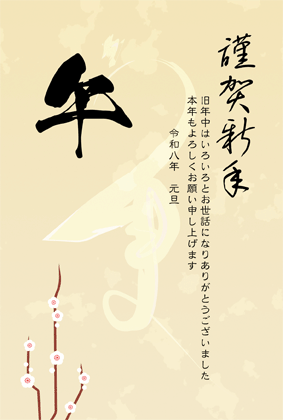 謹賀新年
旧年中はいろいろとお世話になりありがとうございました
本年もよろしくお願い申し上げます
令和八年　元旦
午